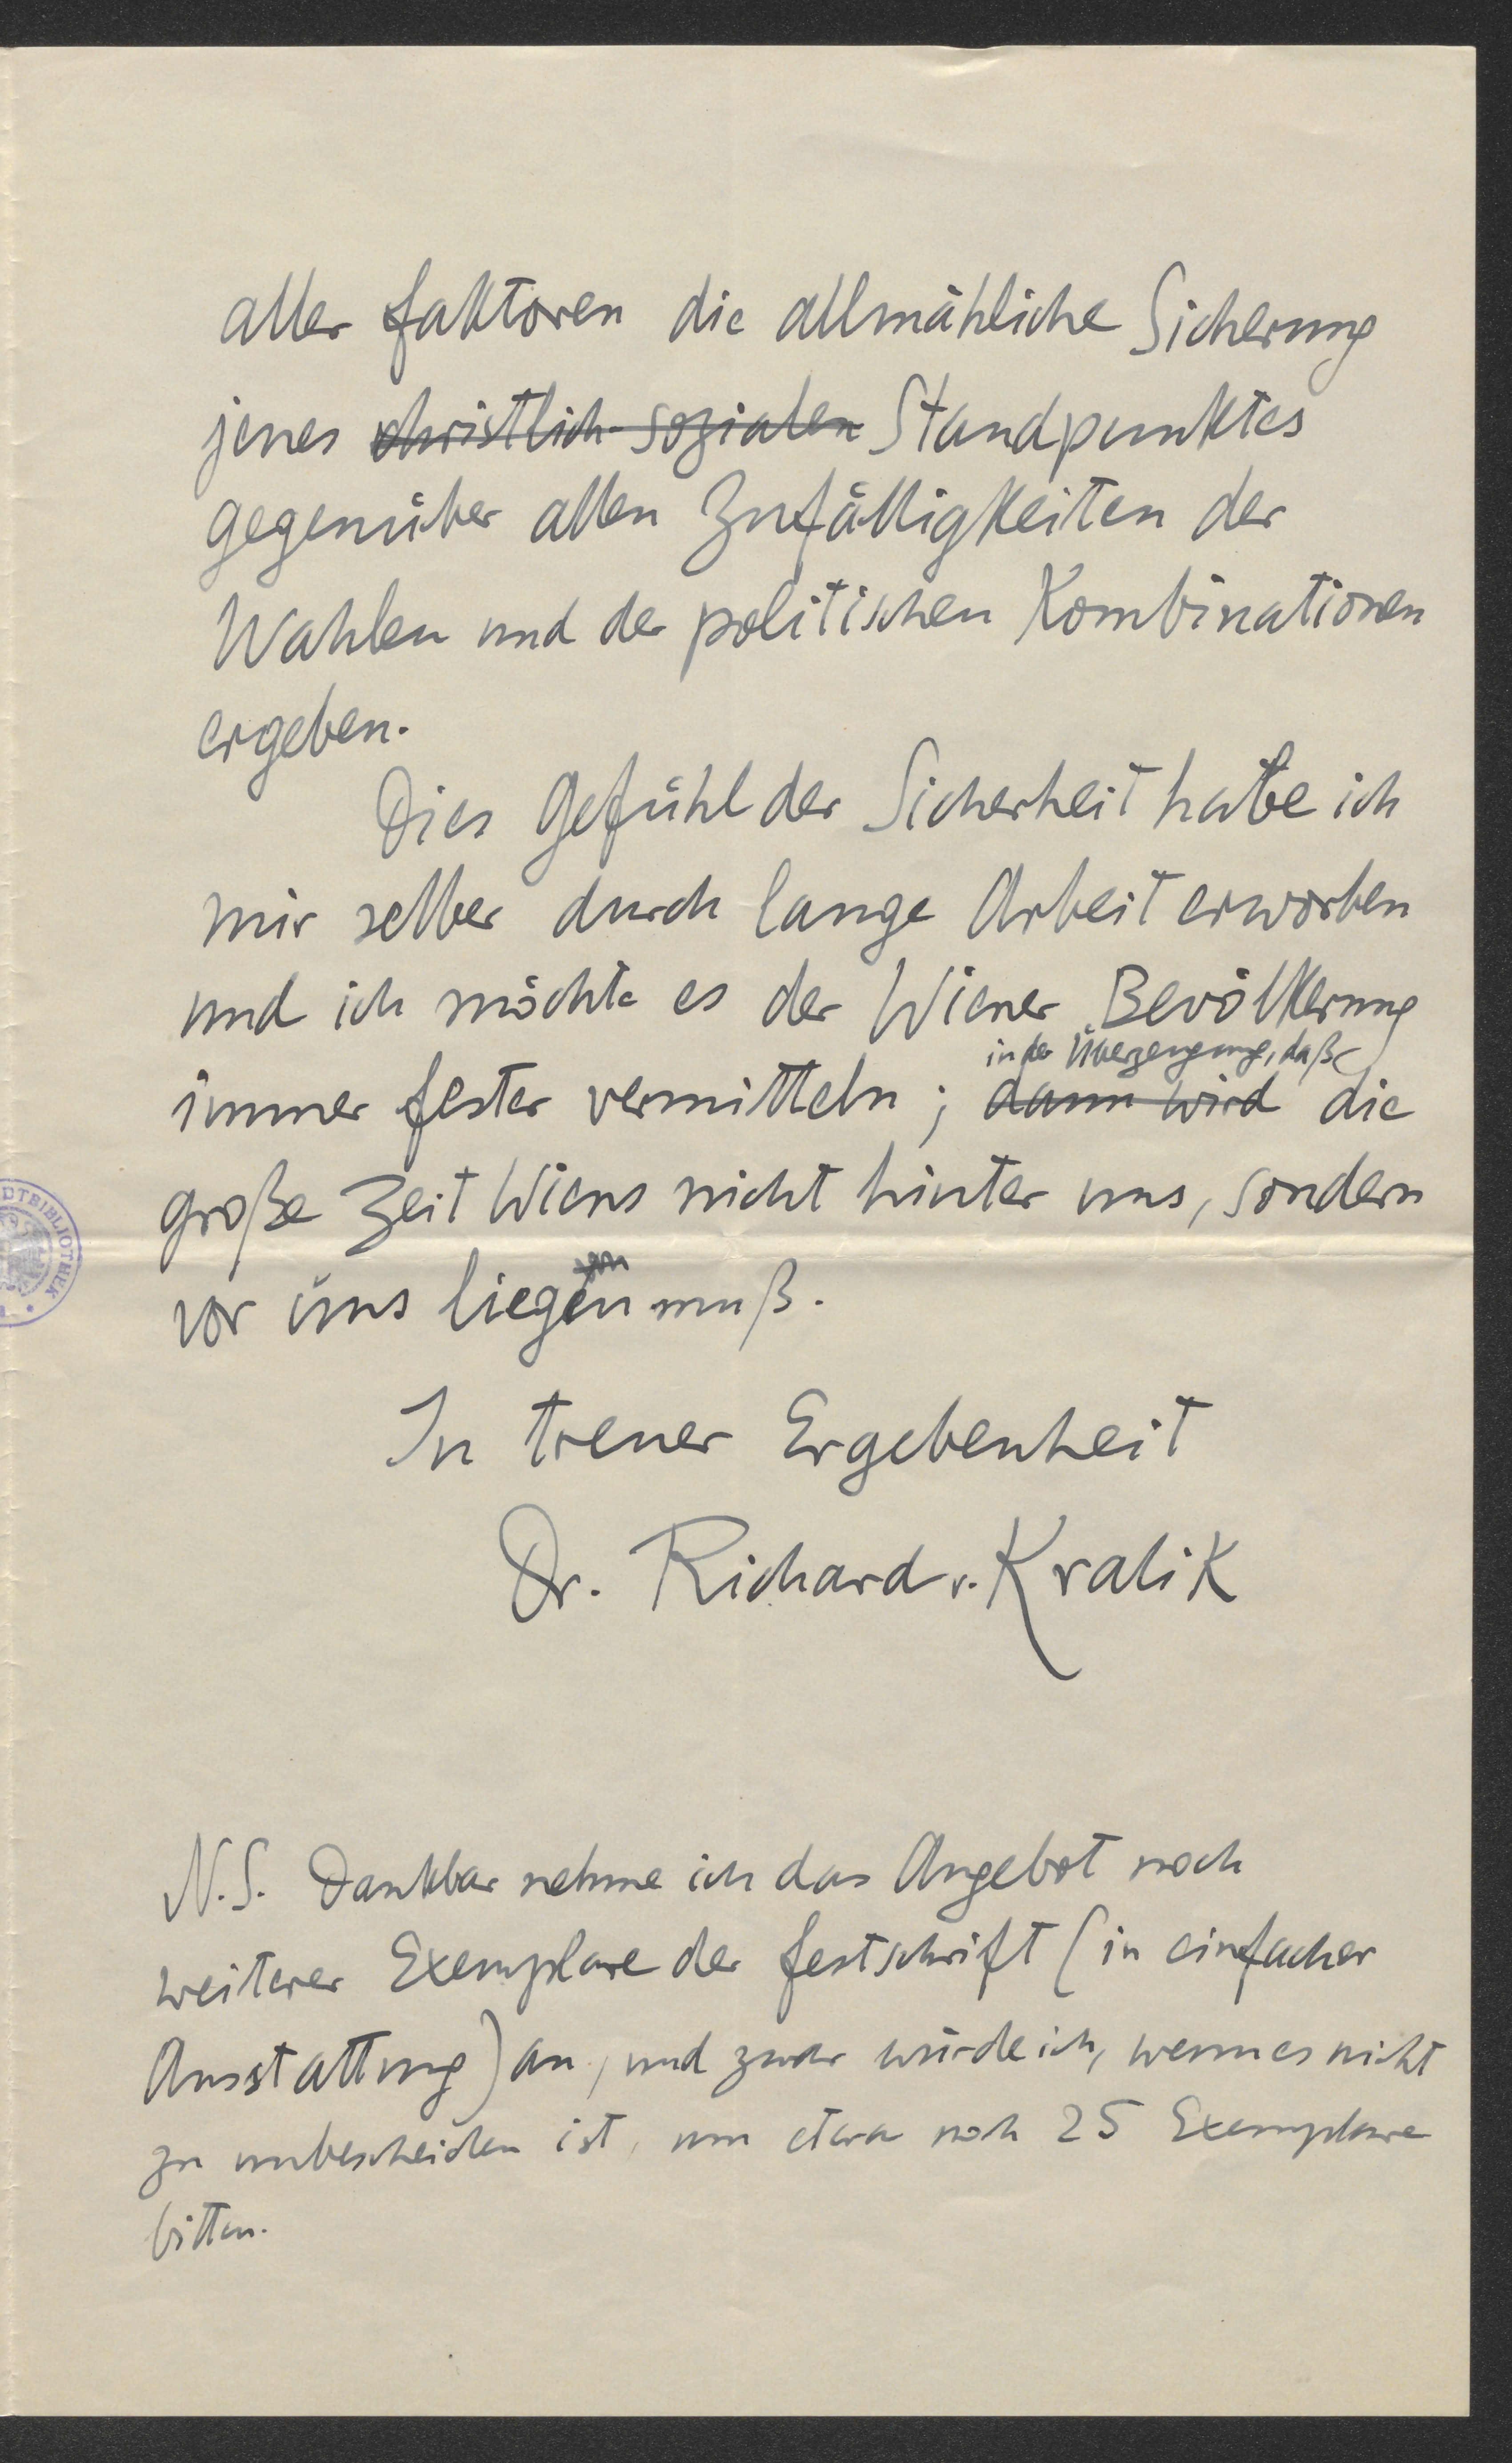 aller Faktoren die allmähliche Sicherung
jenes christlich-sozialen Standpunktes
gegenüber allen Zufälligkeiten der
Wahlen und der politischen Kombinationen
ergeben.
Dies Gefühl der Sicherheit habe ich
mir selber durch lange Arbeit erworben
und ich möchte es der Wiener Bevölkerung
in der Überzeugung, daß
immer fester vermitteln; dann wird die
große Zeit Wiens nicht hinter uns, sondern
vor uns liegen muß.
In treuer Ergebenheit
Dr. Richard v. Kralik
N.S. Dankbar nehme ich das Angebot noch
weiterer Exemplare der Festschrift (in einfacher
Ausstattung) an, und zwar würde ich, wenn es nicht
zu unbescheiden ist, um etwa noch 25 Exemplare
bitten.
DTBIBLIOTHEK